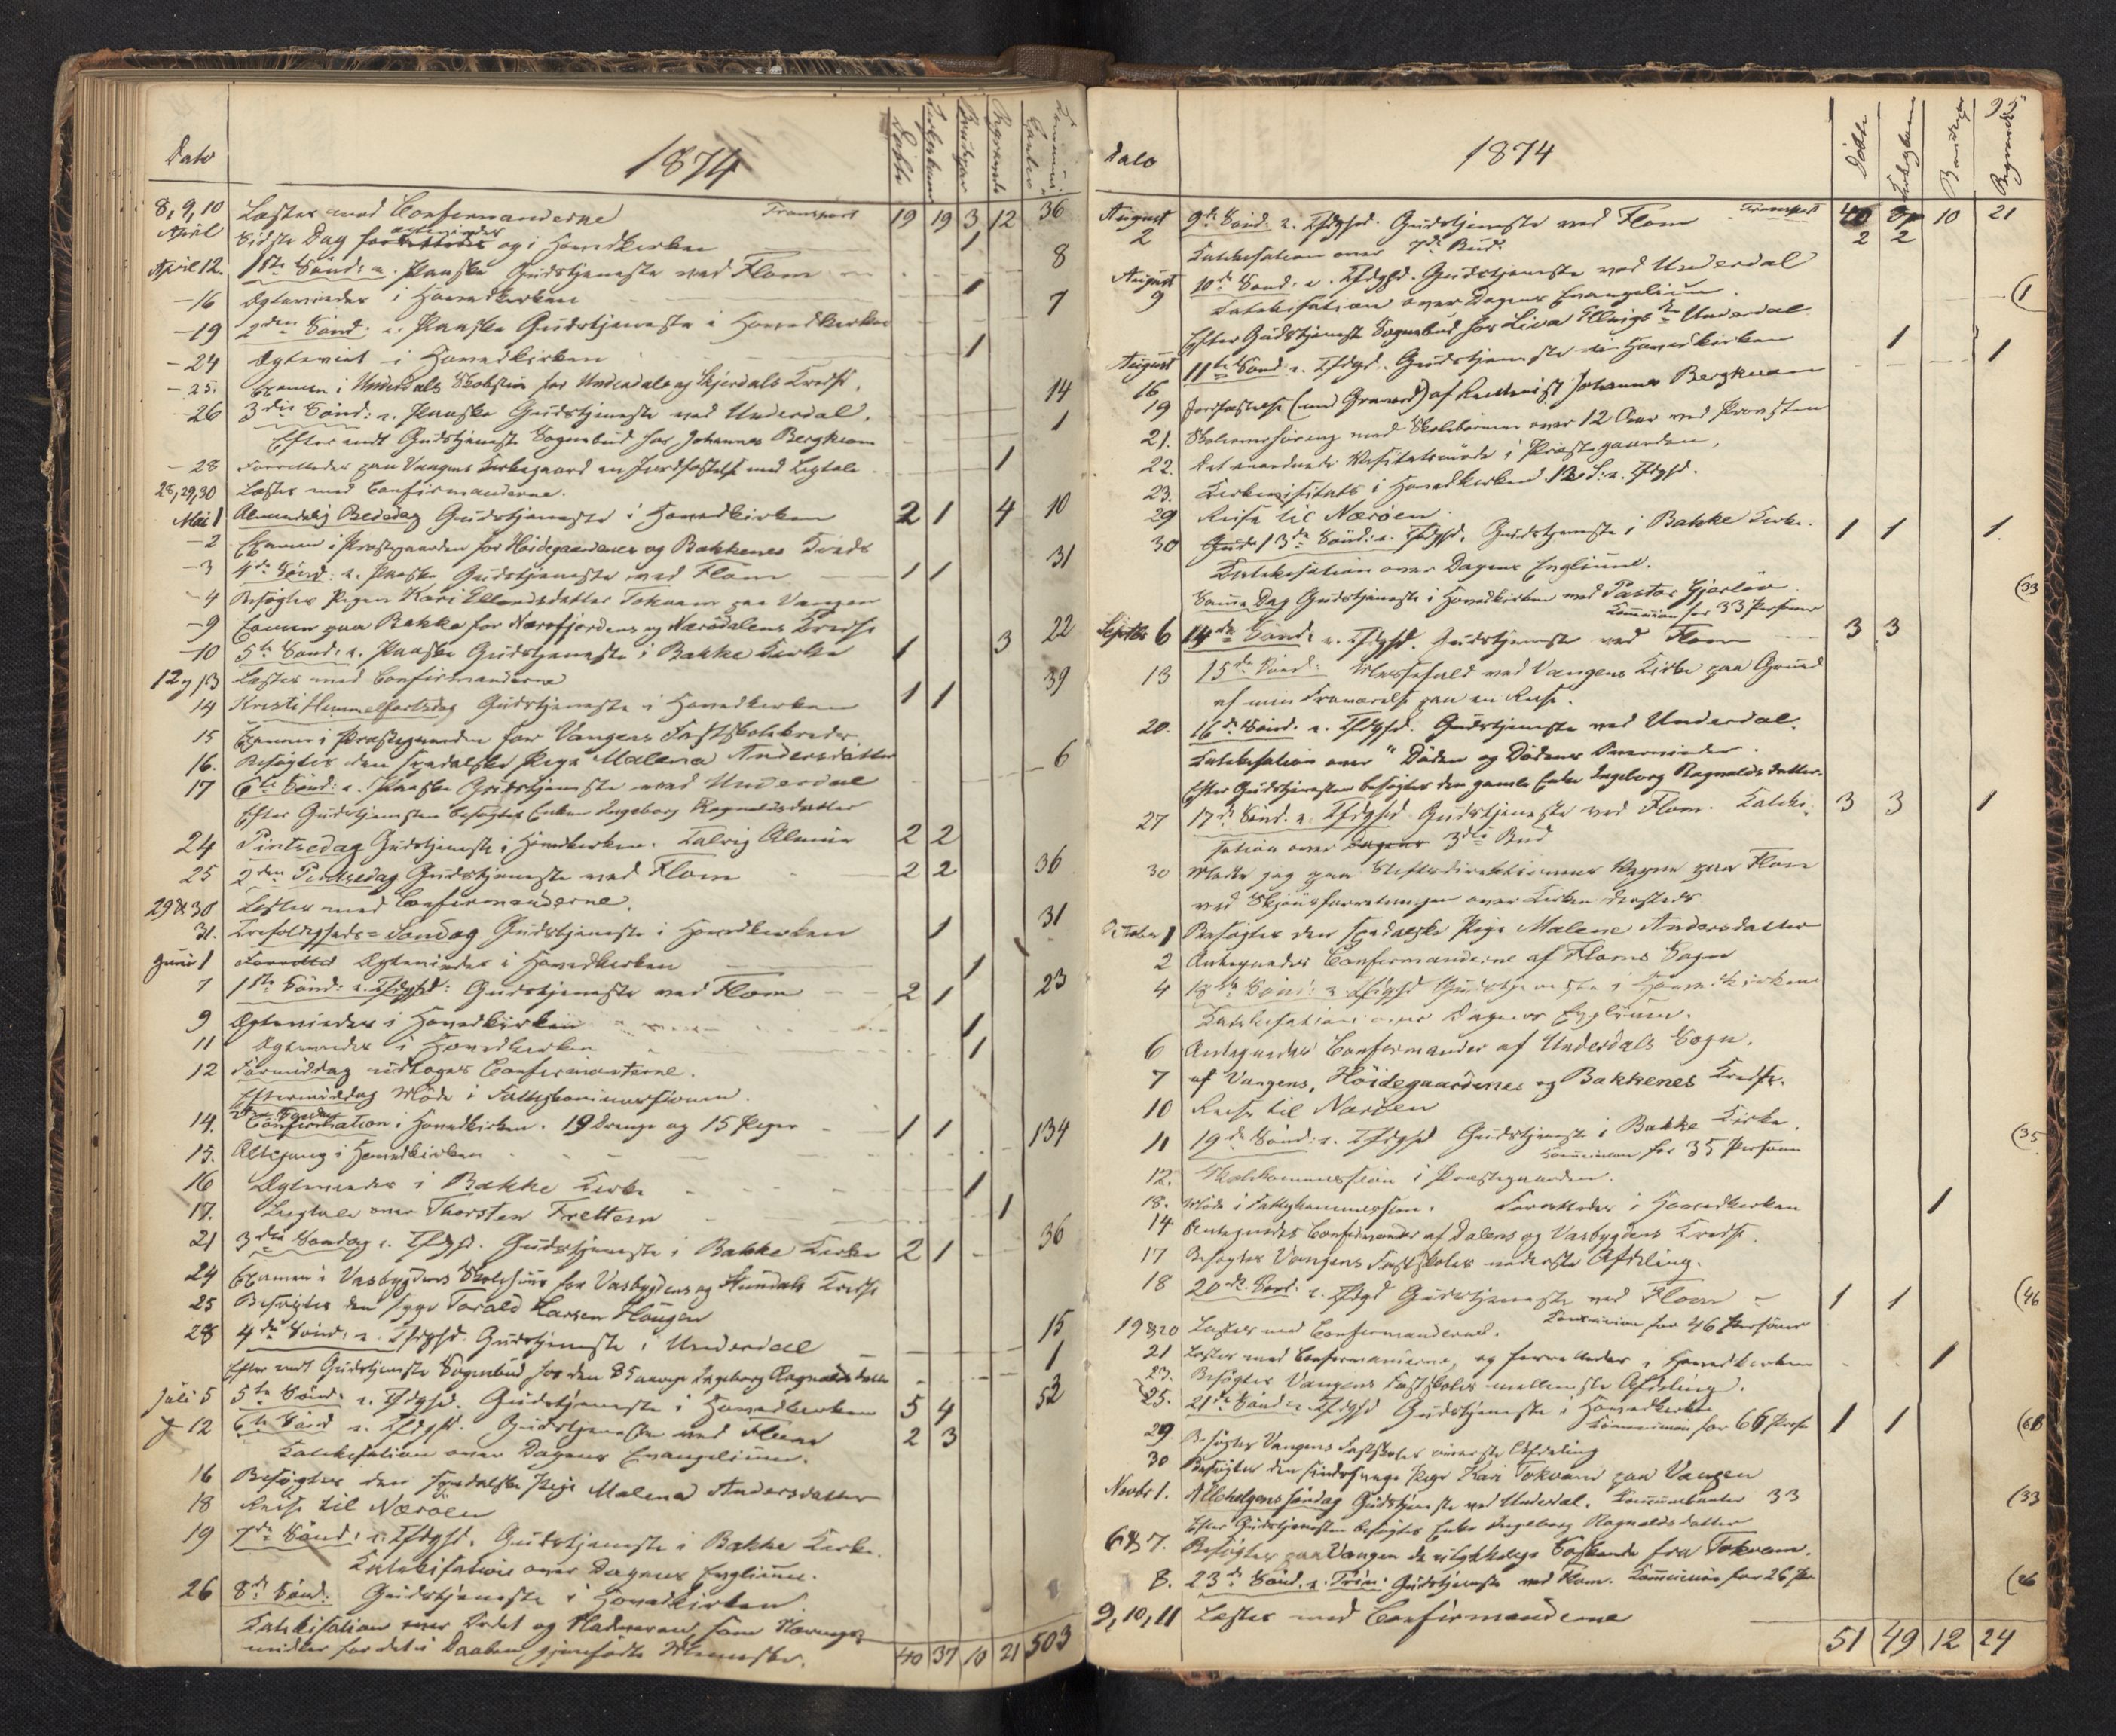 Dato
1874
Døbte
Kirkekoner
Brudepar
Begravede
Communi-
canter
8, 9, 10 Læstes med Confirmanderne Transport 19 19 3 12 36
April Sidste Dag ægtevindes og i Hovedkirken 1
April 12. 1ste Sønd: e. Paaske Gudstjeneste ved Flom 8
-16 Ægteviedes i Hovedkirken 1
-19 2den Sønd: e. Paaske Gudstjeneste i Hovedkirken 7
-24 Ægteviet i Hovedkirken 1
-25. Examen i Underdals Skolestue for Underdals og Skjerdals Kreds.
26 3die Sønd: e. Paaske Gudstjeneste ved Underdal. 14
Efter endt Gudstjeneste Sognebud hos Johannes Bergkvam 1
-28 Forrettedes paa Vangens Kirkegaard en Jordfæstelse med Ligtale 1
28, 29, 30 Læstes med Confirmanderne.
Mai 1 Almindelig Bededag Gudstjeneste i Hovedkirken 2 1 4 10
-2 Examen i Præstegaarden for Høidegaardenes og Bakkenes Kreds
-3 4de Sønd: e. Paaske Gudstjeneste ved Flom 1 1 31
-4 Besøgtes Pigen Kari Ellendsdatter Tokvam paa Vangen
-9 Examen paa Bakke for Nærøfjordens og Nærødalens Kreds
-10 5te Sønd: e. Paaske Gudstjeneste i Bakke Kirke 1 3 22
12 og 13 Læstes med Confirmanderne
14 Kristi Himmelfartsdag Gudstjeneste i Hovedkirken 1 1 39
15 Examen i Præstegaarden for Vangens Fastskolekreds
16. Besøgtes den spedalske Pige Malena Andersdatter
17 6te Sønd: e. Paaske Gudstjeneste ved Underdal 6
Efter Gudstjenesten besøgtes Enken Ingeborg Ragnaldsdatter
24 Pintsedag Gudstjeneste i Hovedkirken. 2 2
25 2den Pintsedag Gudstjeneste ved Flom 2 2 36
29 & 30 Læstes med Confirmanderne.
31. Trefoldigheds-Søndag Gudstjeneste i Hovedkirken 1 31
Juni 1 Forrettet Ægtevindes i Hovedkirken 1
7 1ste Sønd: e. Tfdghd: Gudstjeneste ved Flom 2 1 23
9 Ægteviedes i Hovedkirken 1
11 Ægteviedes i Hovedkirken 1
12 Formiddag udtoges Confirmanterne.
Eftermiddag Møde i Fattigkommissionen.
2den Søndag
14. Confirmation i Hovedkirken. 19 Drenge og 15 Piger 1 1
15. Altergang i Hovedkirken 134
16 Ægteviedes i Bakke Kirke 1
17. Ligtale over Thorsten Frettem 1
21 3die Søndag e. Tfdghd. Gudstjeneste i Bakke Kirke 2 1 36
24 Examen i Vasbygdens Skolehuus for Vasbygdens og Stundals Kreds
25 Besøgtes den syge Torald Larsen Hougen
28 4de Sønd: e. Tfdghd. Gudstjeneste i Underdal 15
Efter endt Gudstjeneste Sognebud hos den 85 aarige Ingeborg Ragnaldsdatter 1
Juli 5 5te Sønd: e. Tfdghd. Gudstjeneste i Hovedkirken 5 4 52
J 12 6te Sønd e. Tfdghd. Gudstjeneste ved Flom 2 3
Katekisation over Dagens Evangelium.
16 Besøgtes den spedalske Pige Malena Andersdatter
18 Reise til Nærøen
19 7de Sønd: e. Tfdghd. Gudstjeneste i Bakke Kirke.
Katekisation over Dagens Evglium.
26 8de Sønd. Gudstjeneste i Hovedkirken.
Katekisation over Ordet og Nadveren som Nærings-
midler for det i Daaben gjenfødte Menneske.
40 37 10 21 503
95
Dato
1874
Døbte
Kirkekoner
Brudepar
Begravede
August 2 9de Sønd. e. Tfdghd. Gudstjeneste ved Flom Transport 40 37 10 21
Katekisation over 7de Bud. 2 2
August 9 10de Sønd: e. Tfdghd. Gudstjeneste ved Underdal
Katekisation over Dagens Evangelium. (1
Efter Gudstjeneste Sognebud hos Underdal
August 16 11te Sønd e. Tfdghd. Gudstjeneste i Hovedkirken 1
19 Jordfæstelse (ved Graven) af Johannes Bergkvam 1
21. Skoleneksering med Skolebørnene over 12 Aar ved Provsten
22. Det anordnede Visitatsmøde i Præstegaarden.
23. Kirkevisitats i Hovedkirken 12 S. e. Tfdghd.
29 Reise til Nærøen.
30 13de Sønd: e. Tfdghd. Gudstjeneste i Bakke Kirke. 1 1 1
Katekisation over Dagens Evglium.
Samme Dag Gudstjeneste i Hovedkirken ved Pastor Gjørløv.
Kommunion for 33 Personer (33
Septbr 6 14de Sønd: e. Tfdghd. Gudstjeneste ved Flom 3 3
13 15de Sønd: Messefald ved Vangens Kirke paa Grund
af min Fraværelse paa en Reise.
20. 16de Sønd. e. Tfdghd. Gudstjeneste ved Underdal.
Katekisation over "Døden og Dødens Overvinder.
Efter Gudstjenesten besøgtes den gamle Enke Ingeborg Ragnaldsdatter.
27 17de Sønd. e. Tfdghd Gudstjeneste ved Flom. Kateki- 3 3 1
sation over Dagens 3die Bud
30 Mødte jeg paa Stiftsdirektionens Vegne paa Flom
ved Skjønsforretningen over Kirken dersteds
October 1 Besøgtes den spedalske Pige Malene Andersdatter
2 Antegnedes Confirmanderne af Floms Sogn
4 18de Sønd: e. Tfdghd Gudstjeneste i Hovedkirken
Katekisation over Dagens Evglium.
6 Antegnedes Confirmander af Underdals Sogn.
7 af Vangens, Høidegaardenes og Bakkenes Kredse.
10 Reise til Nærøen
11 19de Sønd: e. Tfdghd Gudstjeneste i Bakke Kirke.
Kommunion for 35 Personer (35
12. Skolekommission i Præstegaarden.
18. Møde i Fattigkommission. Forrettedes i Hovedkirken 1
14 Antegnedes Confirmander af Dalens og Vasbygdens Kredse.
17 Besøgtes Vangens Fastskoles nederste Afdeling.
18 20de Sønd. e. Tfdghd Gudstjeneste ved Flom 1 1
Kommunion for 46 Personer (46
19 & 20 Læstes med Confirmanderne.
21 Læstes med Confirmanderne, og forrettedes i Hovedkirken 1
23. Besøgtes Vangens Fastskoles mellemste Afdeling.
25. 21de Sønd e. Tfdghd Gudstjeneste i Hovedkirken
Kommunion for 66 Pers. 1 1 (66
29 Besøgtes Vangens Fastskoles øverste Afdeling
30 Besøgtes den sindssvage Pige Kari Tokvam paa Vangen
Novbr 1. Allehelgens Søndag Gudstjeneste ved Underdal. Kommunikanter 33 (33
Efter Gudstjenesten besøgtes Enke Ingeborg Ragnaldsdatter
6 & 7. Besøgtes paa Vangen de ulykkelige fra Tokvam.
8. 23de Sønd. e. Trin: Gudstjeneste ved Flom. Kommunion for 26 Per. (26
9, 10, 11 Læstes med Confirmanderne
51 49 12 24